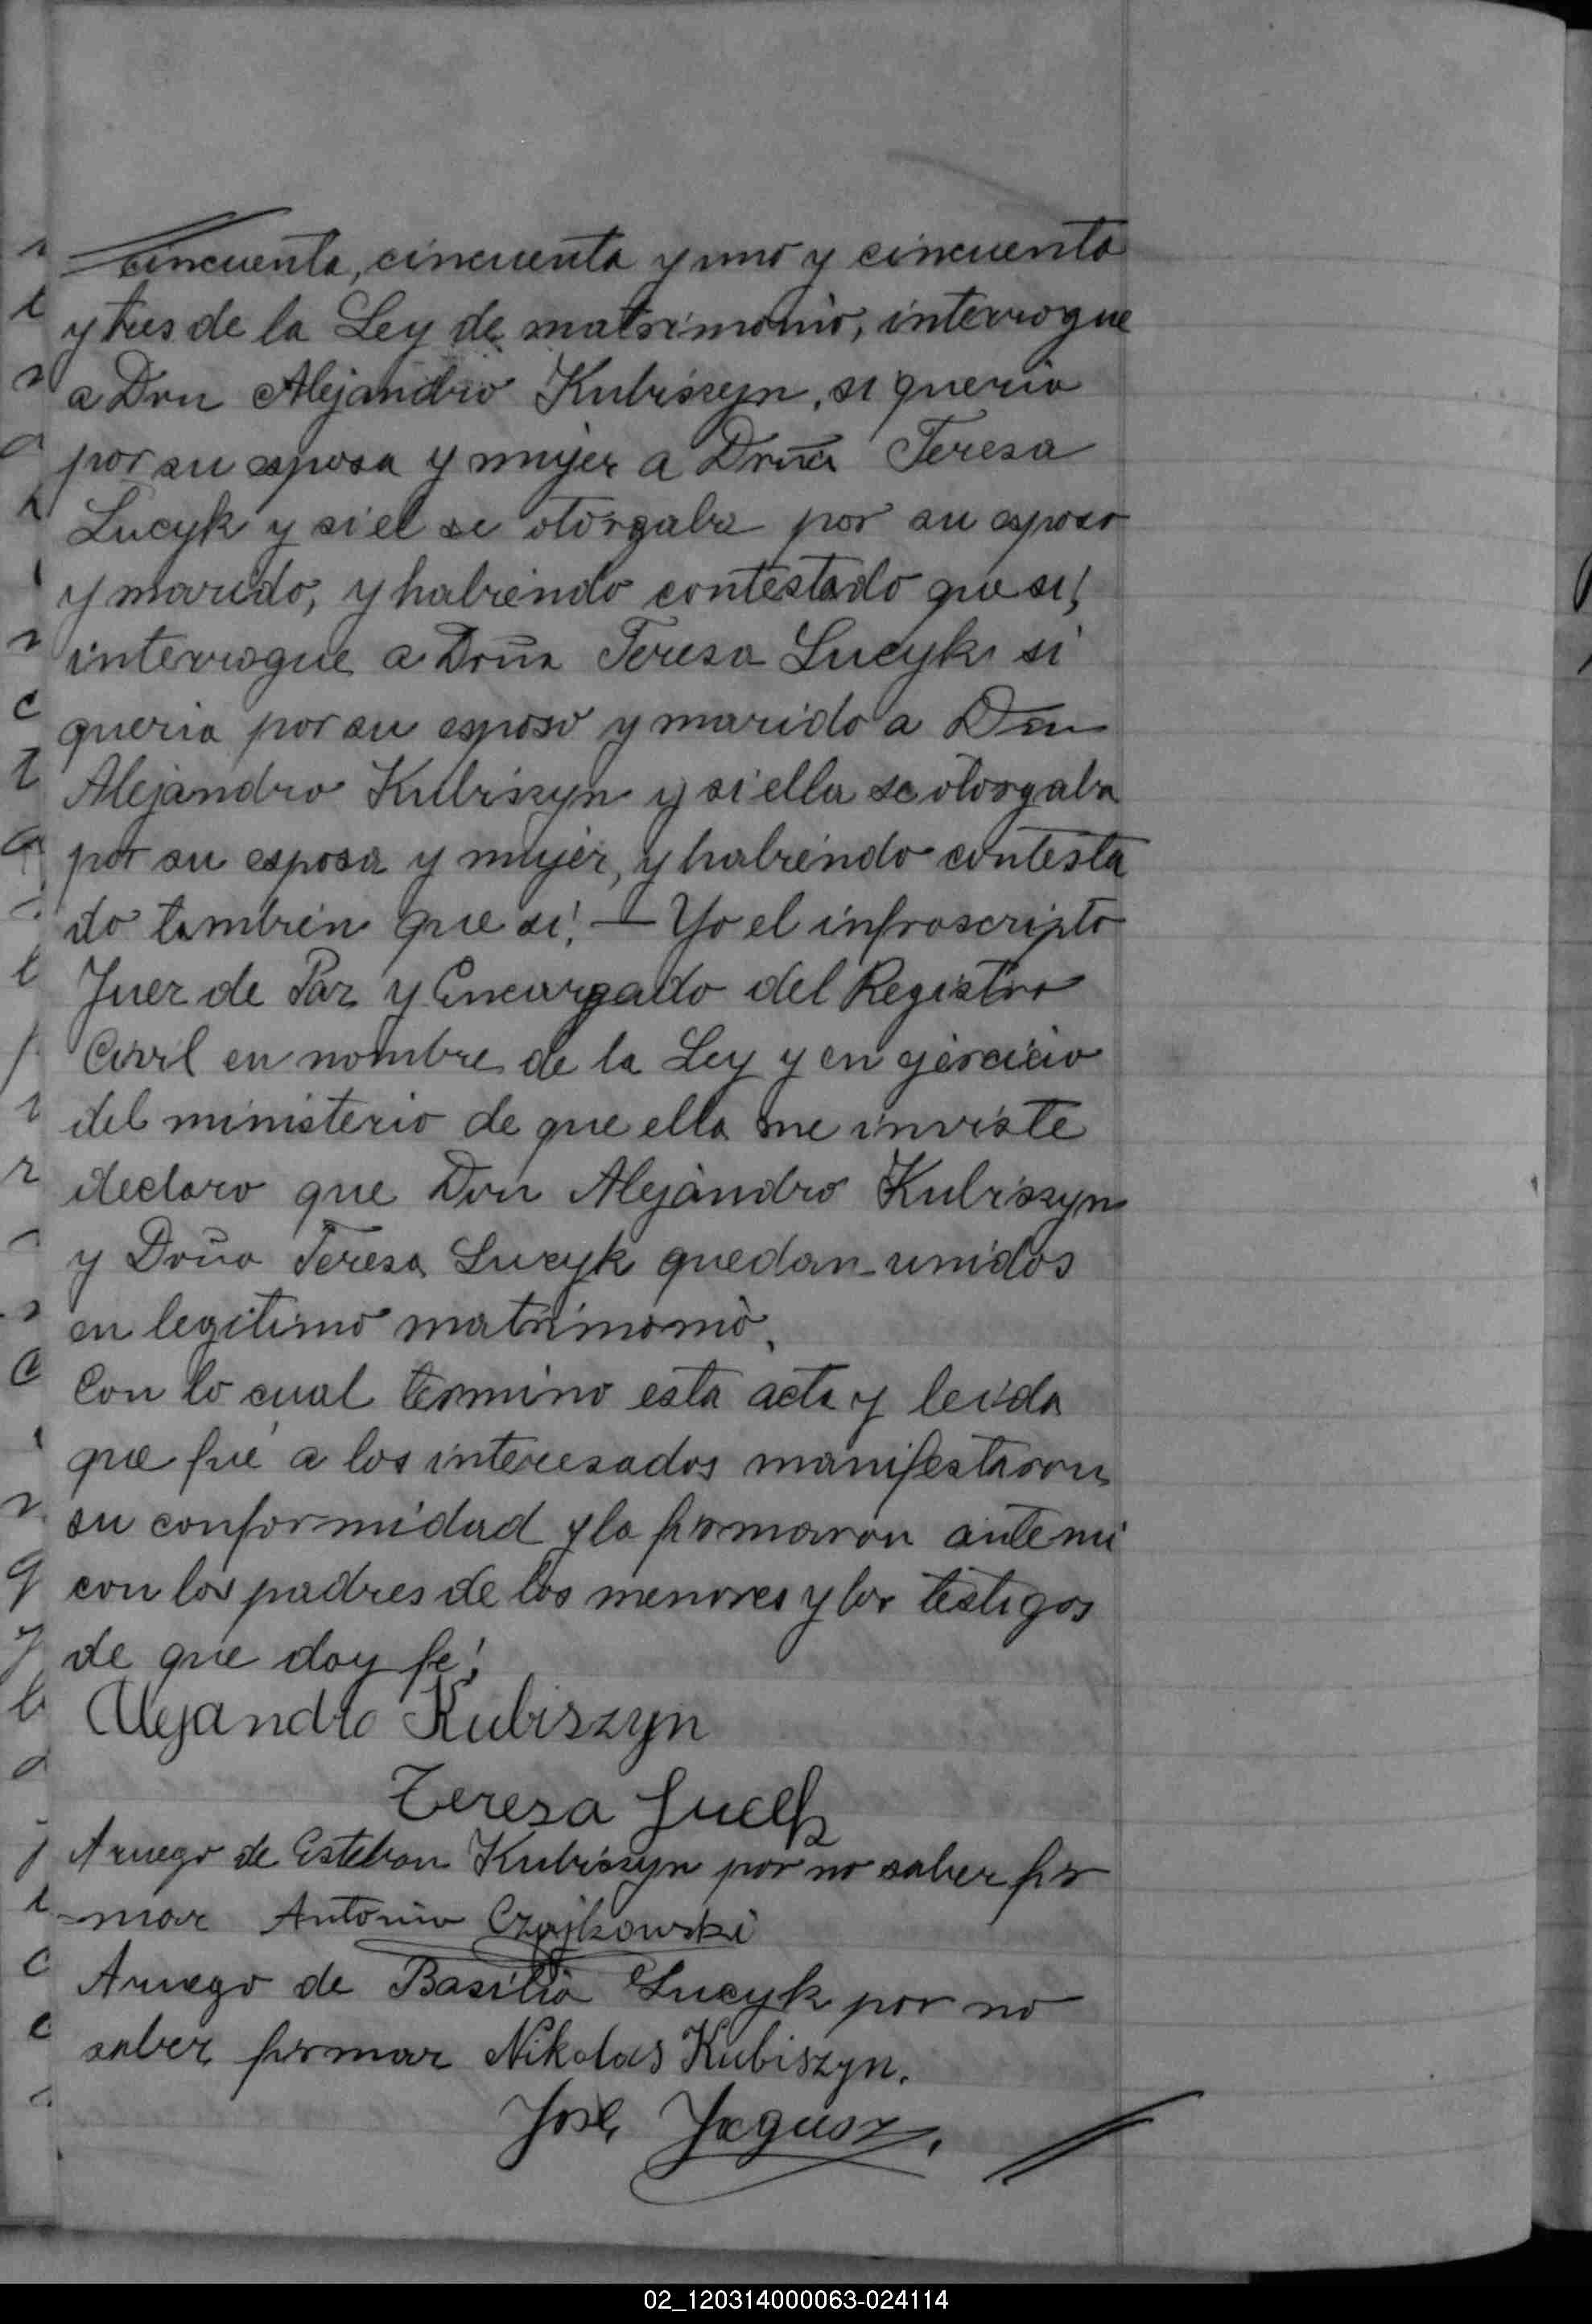 cincuenta, cincuenta y uno y cincuenta
y tres de la Ley de matrimonio, interrogue
a Don Alejandro Kubiszyn, si queria
por su esposa y mujer a Doña Teresa
Lucyk y si el se otorgaba por su esposo
y marido, y habiendo contestado que si!
interrogue a Doña Teresa Lucyk si
queria por su esposo y marido a Don
Alejandro Kubiszyn y si ella se otorgaba
por su esposa y mujer, y habiendo contesta
do tambien que si! — Yo el infrascripto
Juez de Paz y Encargado del Registro
Civil en nombre de la Ley y en ejercicio
del ministerio de que ella me inviste
declaro que Don Alejandro Kubiszyn
y Doña Teresa Lucyk quedan unidos
en legitimo matrimonio.
Con lo cual termino esta acta y leida
que fué a los interesados manifestaron
su conformidad y la firmaron ante mi
con los padres de los menores y los testigos
de que doy fe!
Alejandro Kubiszyn
Teresa
A ruego de Esteban Kubiszyn por no saber fir
-mar Antonio Czajkowski
A ruego de Basilio Lucyk por no
saber firmar Nikolas Kubiszyn.
José Jagusz.
02_120314000063-024114